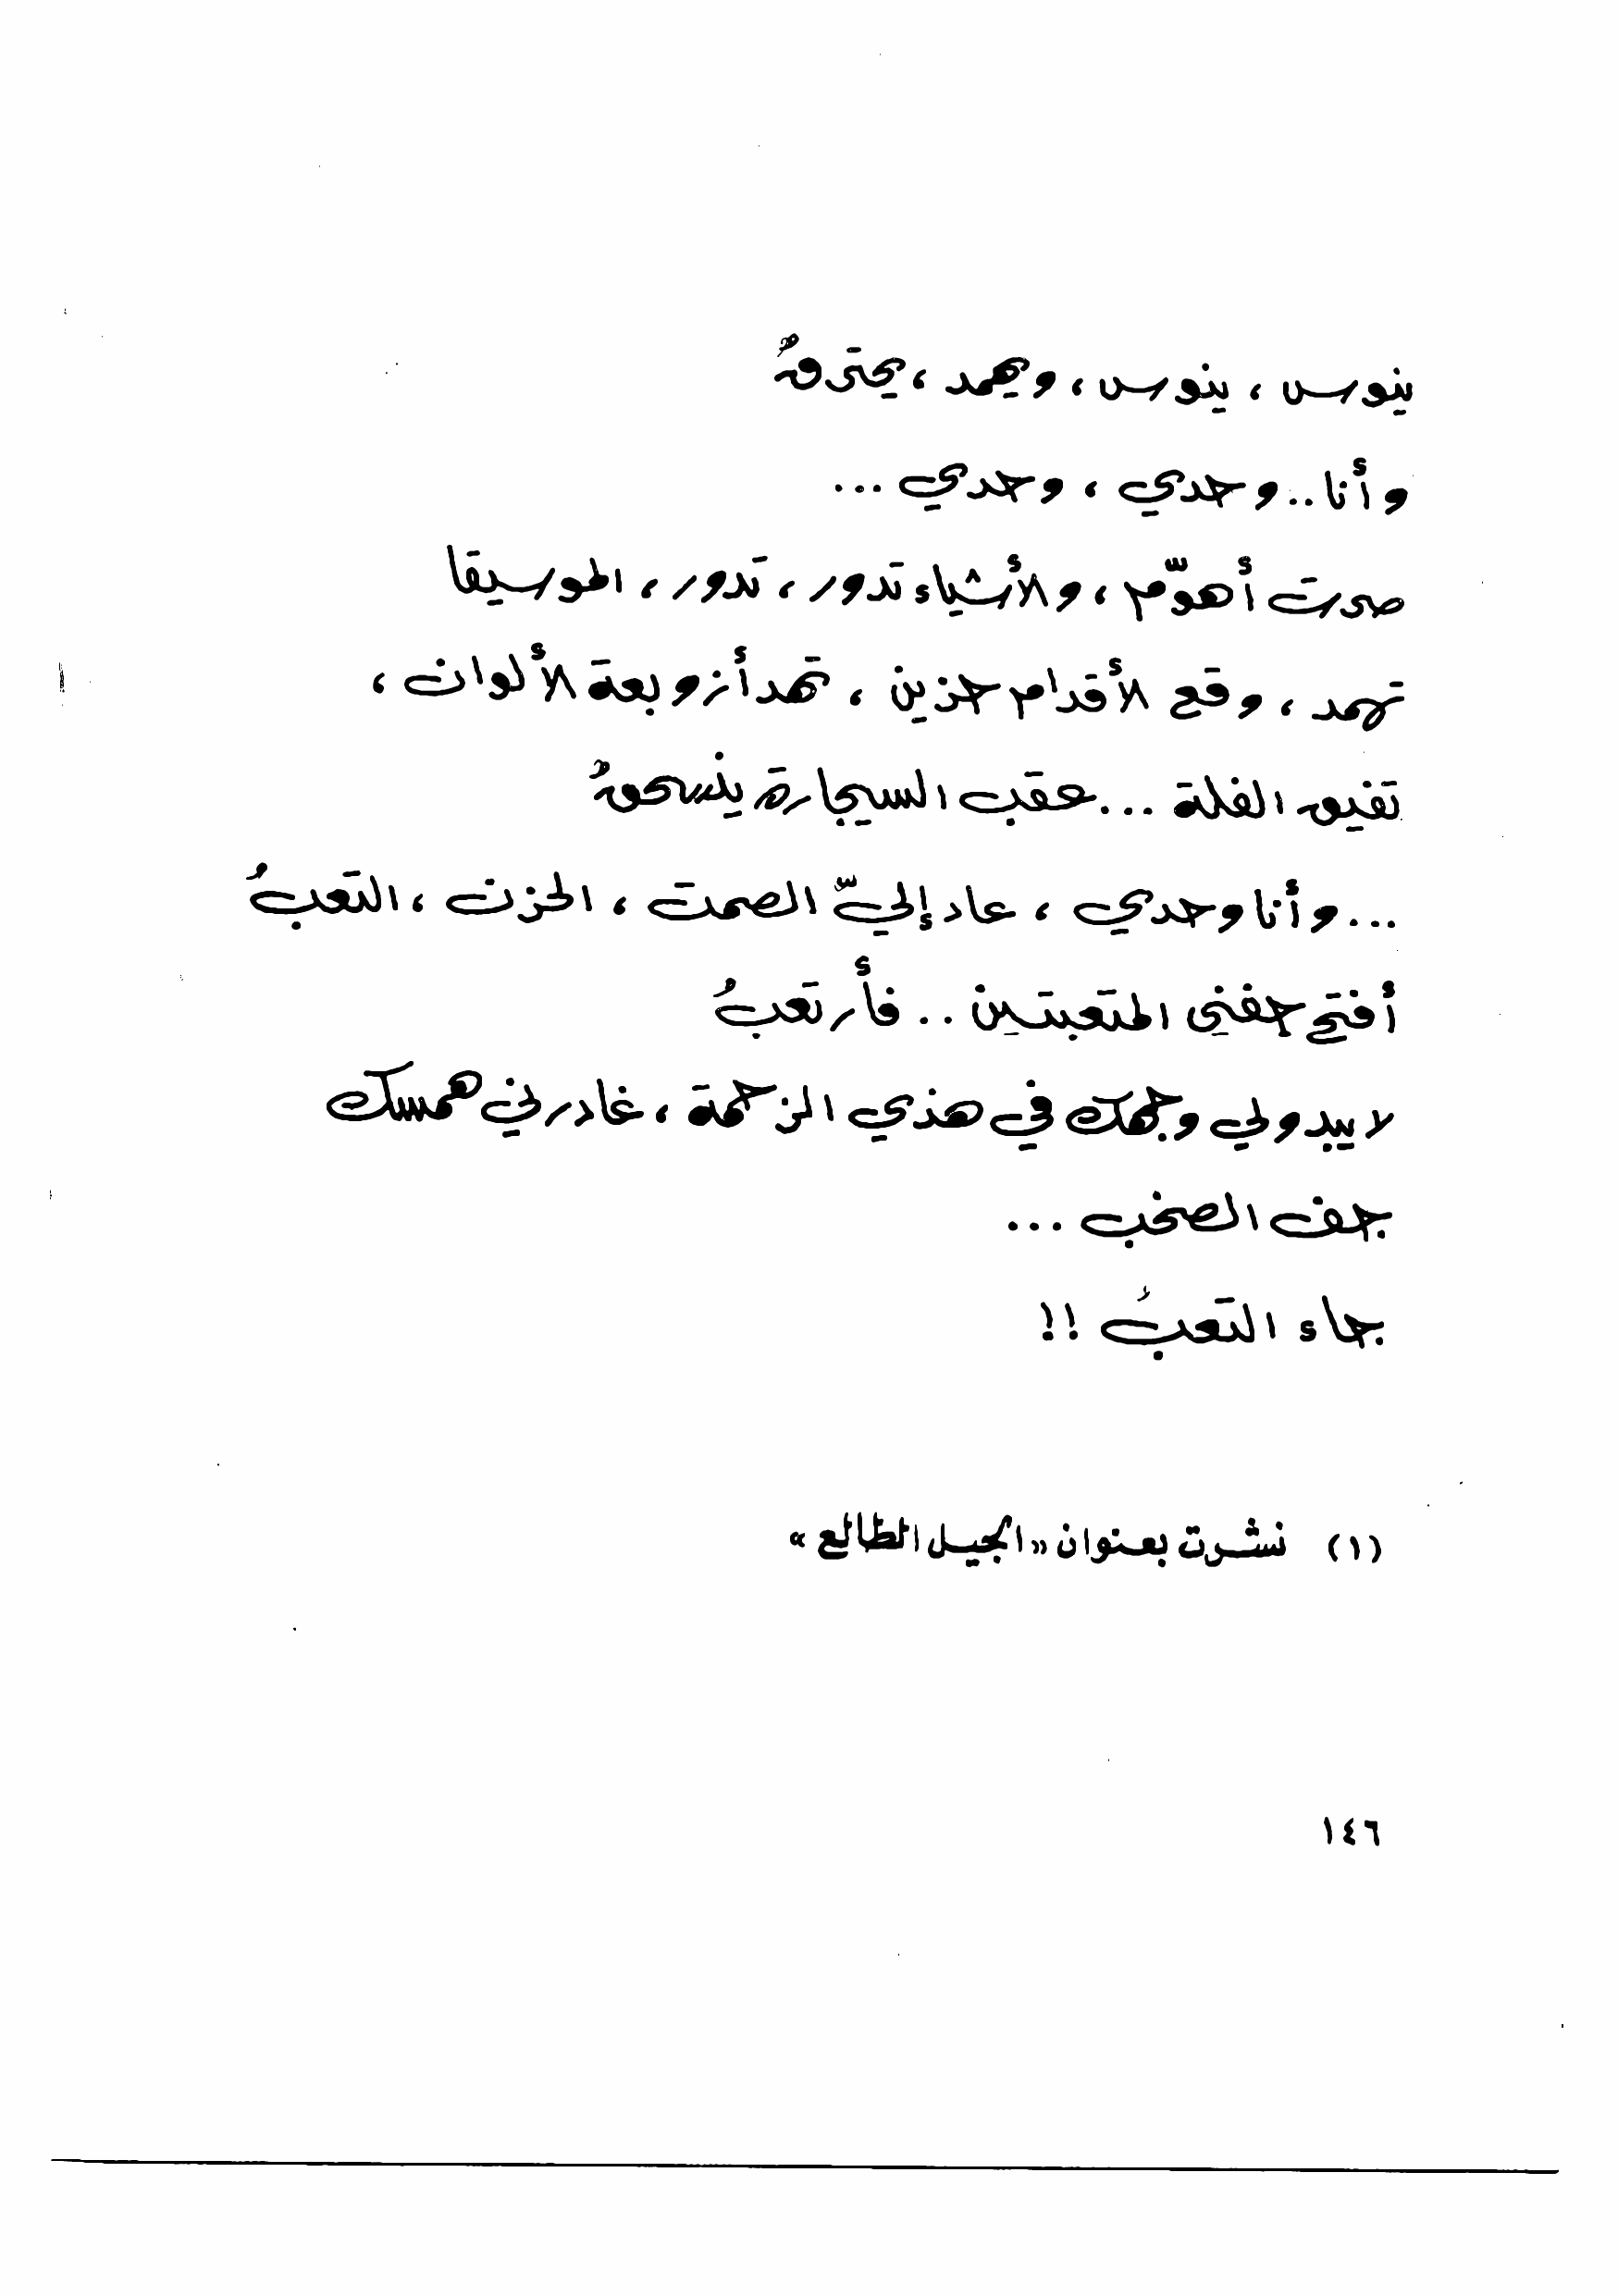 ينوس ، ينوس ، ويهمد ، يحترقُ
وأنا.. وحدي ، وحدي ...
صرت أهوّم ، والأشياء تدور ، تدور ، الموسيقا
تهمد ، وقع الأقدام حزين ، تهدأ زوبعة الألوان ،
تفيق الفلة ... عقب السيجارة ينسحقُ
... وأنا وحدي ، عاد إليّ الصمت ، الحزن ، التعبُ
أفتح جفني المتعبتين .. فأرتعبُ
لا يبدولي وجهك في هذي الزحمة ، غادرني همسك
جف الصخب ...
جاء التعبُ !!
(١) نشرت بعنوان «الجيل الطالع»
١٤٦